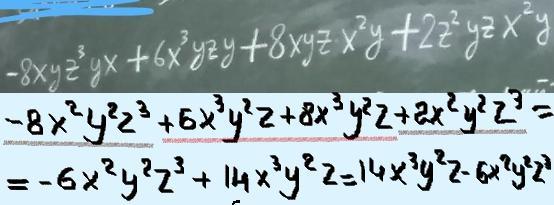 -8xyz³yx + 6x³yzy + 8xyzx²y + 2z²yzx²y
-8x²y²z³ + 6x³y²z + 8x³y²z + 2x²y²z³ =
= -6x²y²z³ + 14x³y²z = 14x³y²z - 6x²y²z³